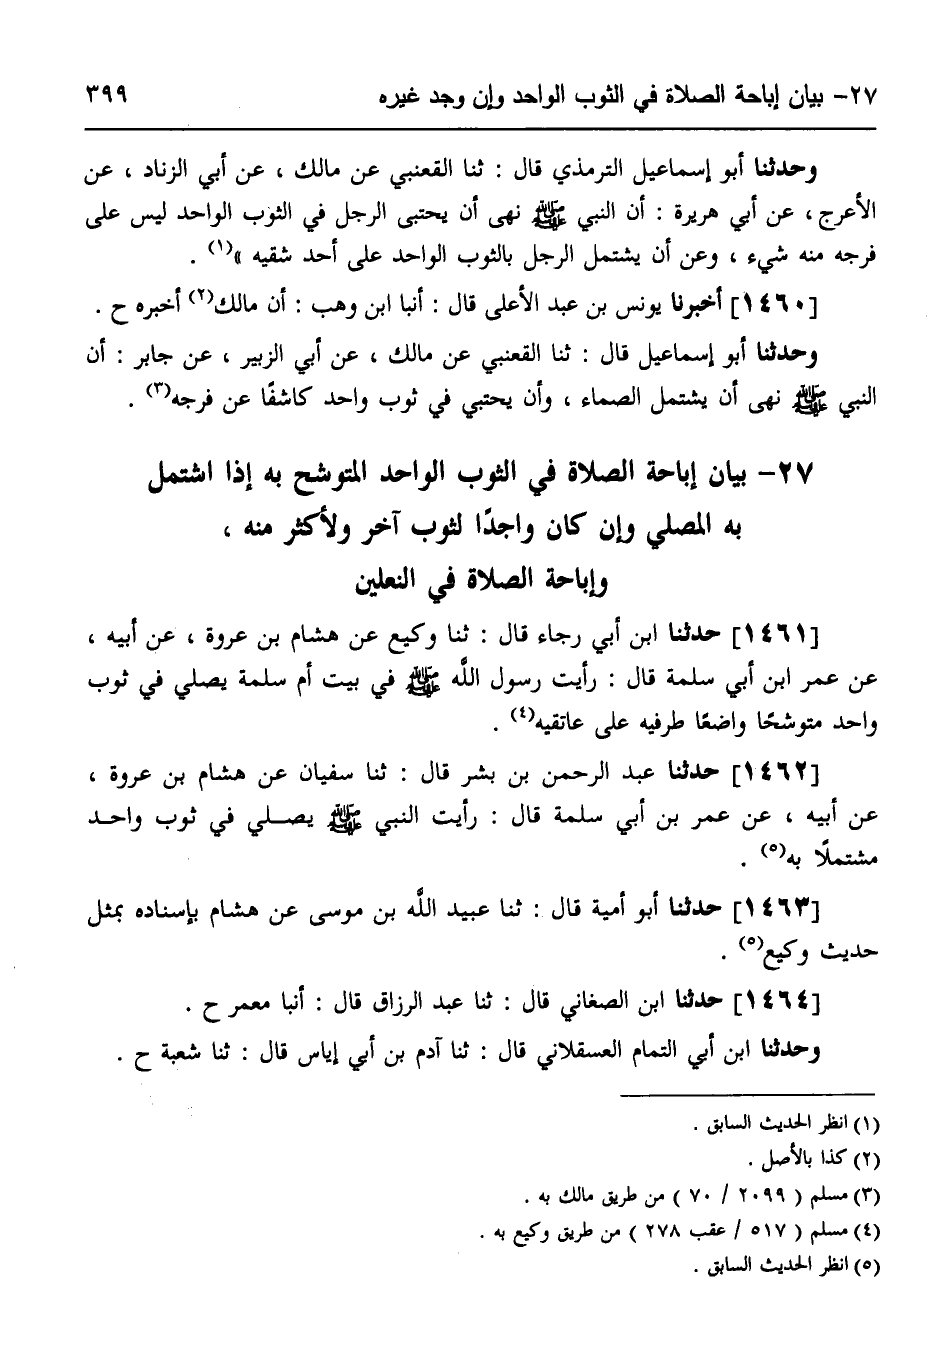 ٢٧- بيان إباحة الصلاة في الثوب الواحد وإن وجد غيره ٣٩٩
وحدثنا أبو إسماعيل الترمذي قال : ثنا القعنبي عن مالك ، عن أبي الزناد ، عن
الأعرج ، عن أبي هريرة : أن النبي ﷺ نهى أن يحتبى الرجل في الثوب الواحد ليس على
فرجه منه شيء ، وعن أن يشتمل الرجل بالثوب الواحد على أحد شقيه »(١) .
[١٤٦٠] أخبرنا يونس بن عبد الأعلى قال : أنبا ابن وهب : أن مالك(٢) أخبره ح .
وحدثنا أبو إسماعيل قال : ثنا القعنبي عن مالك ، عن أبي الزبير ، عن جابر : أن
النبي ﷺ نهى أن يشتمل الصماء ، وأن يحتبي في ثوب واحد كاشفًا عن فرجه(٣) .
٢٧- بيان إباحة الصلاة في الثوب الواحد المتوشح به إذا اشتمل
به المصلي وإن كان واجدًا لثوب آخر ولأكثر منه ،
وإباحة الصلاة في النعلين
[١٤٦١] حدثنا ابن أبي رجاء قال : ثنا وكيع عن هشام بن عروة ، عن أبيه ،
عن عمر ابن أبي سلمة قال : رأيت رسول اللَّه ﷺ في بيت أم سلمة يصلي في ثوب
واحد متوشحًا واضعًا طرفيه على عاتقيه(٤) .
[١٤٦٢] حدثنا عبد الرحمن بن بشر قال : ثنا سفيان عن هشام بن عروة ،
عن أبيه ، عن عمر بن أبي سلمة قال : رأيت النبي ﷺ يصلي في ثوب واحد
مشتملًا به(٥) .
[١٤٦٣] حدثنا أبو أمية قال : ثنا عبيد اللَّه بن موسى عن هشام بإسناده بمثل
حديث وكيع(٥) .
[١٤٦٤] حدثنا ابن الصغاني قال : ثنا عبد الرزاق قال : أنبا معمر ح .
وحدثنا ابن أبي التمام العسقلاني قال : ثنا آدم بن أبي إياس قال : ثنا شعبة ح .
(١) انظر الحديث السابق .
(٢) كذا بالأصل .
(٣) مسلم ( ٢٠٩٩ / ٧٠ ) من طريق مالك به .
(٤) مسلم ( ٥١٧ / عقب ٢٧٨ ) من طريق وكيع به .
(٥) انظر الحديث السابق .